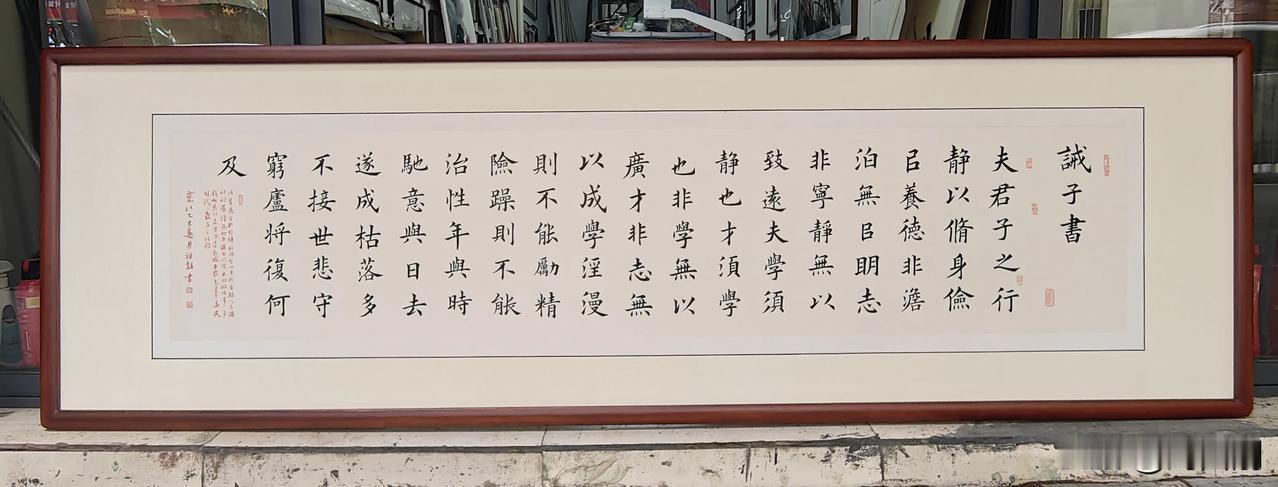 誡子書
夫君子之行
静以脩身儉
㠯養德非澹
泊無㠯明志
非寧靜無以
致遠夫學須
静也才須學
也非學無以
廣才非志無
以成學淫漫
則不能勵精
險躁則不能
治性年與時
馳意與日去
遂成枯落多
不接世悲守
窮廬將復何
及